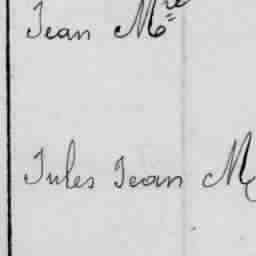 Jean Mre
Jules Jean M